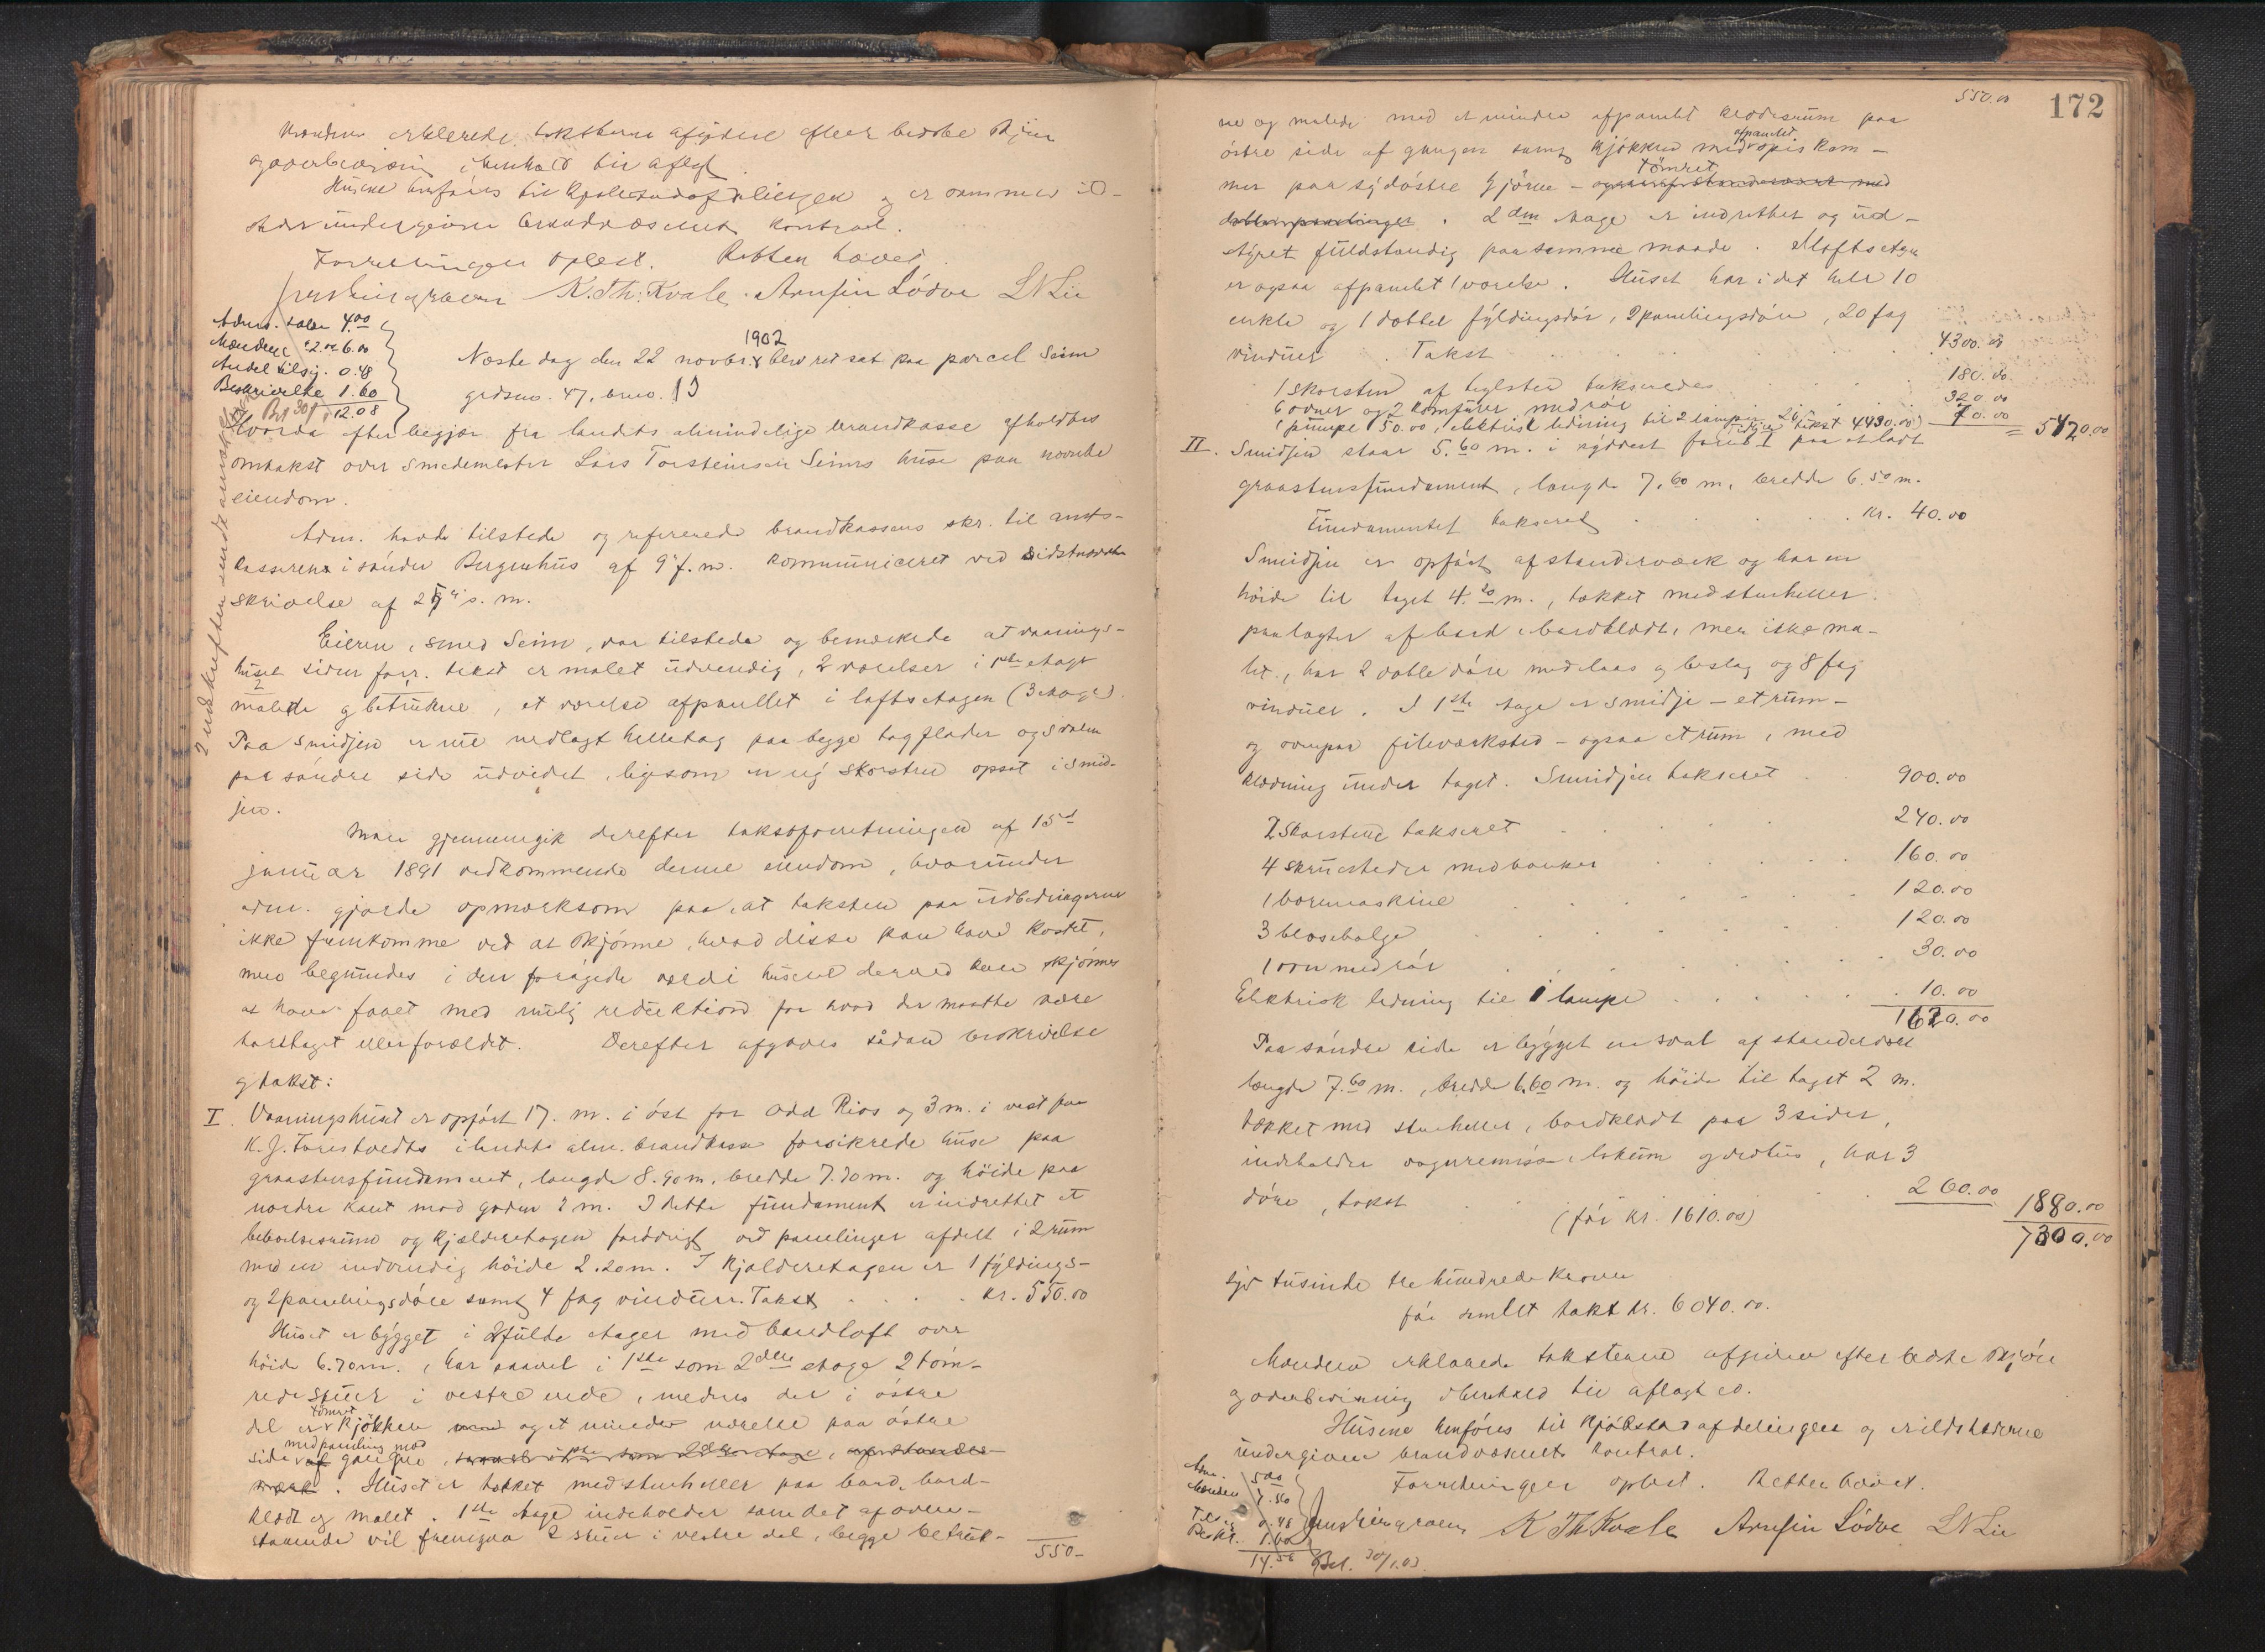 Mændene erklærede taksterne afgivne efter bedste skjøn
og overbevisning i henhold til aflagt
Husene henføres til kjøbstadafdelingen og er sammen ild-
steder undergivne brandvæsenets kontrol.
Forretningen oplæst. Retten hævet.
K. Th. Kvale. Arnfin Lødve LN Lie
Adm. 4.00
Mændene 2.00 6.00
Andel tilsig. 0.48
Beskrivelse 1.60
12.08
Næste dag den 22 novbr. 1902 blev ret sat paa parcel Seim
grdsno. 47, brno. 13
Hvorda efter begjær fra landets almindelige brandkasse afholdtes
omtakst over smedemester Lars Torsteinsen Seims huse paa nævnte
eiendom.
Adm. havde tilstede og refererede brandkassens skr. til amts-
kassereren i søndre Bergenhus af 9 f. m. kommuniceret ved sidstnævnte
skrivelse af s. m.
Eieren, smed Seim, var tilstede og bemærkede at vaanings-
huset siden forr. takst er malet udvendig, 2 værelser i 1ste etage
malede og betrukne, et værelse afpanellet i loftsetagen (3 etage).
Paa smidjen er nu nedlagt helletag paa begge tagflader og svalen
paa søndre side udvidet, ligesom en ny skorsten opsat i smid-
jen.
Man gjennemgik derefter takstforretningen af 15d
januar 1891 vedkommende denne eiendom, hvorunder
adm. gjorde opmærksom paa, at taksten paa udbedringerne
ikke fremkomme ved at skjønne, hvad disse kan have kostet,
men begrundes i den forøgede værdi husene derved kan skjønnes
at have faaet med mulig reduktion for hvad der maatte være
borttaget eller forældet. Derefter afgaves sådan beskrivelse
og takst:
I. Vaaningshuset er opført 17. m. i øst for Odd Rios og 3 m. i vest for
K. J. i landets alm. brandkasse forsikrede huse paa
graastensfundament, længde 8.90 m. bredde 7.70 m. og høide paa
nordre kant mod gaden 2 m. I dette fundament er indrettet et
beboelsesrum og kjælderetagen forøvrigt ved panelinger afdelt i 2 rum
med en indvendig høide 2.20 m. I kjælderetagen er 1 fyldings-
og 2 panelingsdøre samt 4 fag vinduer. Takst kr. 550.00
Huset er bygget i 2 fulde etager med bandloft over
høide 6.70 m., har saavel i 1ste som 2den etage 2 tøm-
rede stuer i vestre ende, medens der i østre
del er tømret kjøkken og et mindre værelse paa østre
side med paneling mod gangene, saavel i 1ste som 2den etage, af stander-
værk. Huset er tækket med stenheller paa bord, bord-
klædt og malet. 1ste etage indeholder som det af oven-
staaende vil fremgaa 2 stuer i vestre del, begge betruk-
550-
172
550.00
ne og malede med et mindre afpanelet klædesrum paa
østre side af gangen samt kjøkken med afpanelet spiskam-
mer paa sydøstre hjørne - tømret
dobbelt panelinger. 2den etage er indrettet og ud-
styret fuldstændig paa samme maade. I loftsetagen
er ogsaa afpanelet 1 værelse. Huset har i det hele 10
enkle og 1 dobbel fyldingsdør, 2 panelingsdøre, 20 fag
vinduer. Takst 4300.00
1 skorsten af teglsten takseredes 180.00
6 ovner og 2 komfurer med rør 320.00
1 pumpe 50.00, elektrisk ledning til 2 lamper 20 70.00 = 5420.00
(tidligere takst 4430.00)
II. Smidjen staar 5.60 m. i sydvest for No I paa et lødt
graastensfundament, længde 7.60 m. bredde 6.50 m.
Fundamentet takseret kr. 40.00
Smidjen er opført af standerværk og har en
høide til taget 4.20 m., tækket med stenheller
paa lægter af bord, bordklædt, men ikke ma-
let, har 2 doble døre med laas og beslag og 8 fag
vinduer. I 1ste etage er smidje - et rum -
og ovenpaa fileværksted - ogsaa et rum, med
klædning under taget. Smidjen takseret 900.00
2 skorstene takseret 240.00
4 skruesteder med bænker 160.00
1 boremaskine 120.00
3 blæsebælge 120.00
1 ovn med rør 30.00
Elektrisk ledning til 1 lampe 10.00
1620.00
Paa søndre side er bygget en sval af standerværk
længde 7.60 m., bredde 1.60 m. og høide til taget 2 m.
tækket med stenheller, bordklædt paa 3 sider,
indeholder vognremisse, og vedhus, har 3
døre, takst 260.00 1880.00
(før kr. 1610.00) 7300.00
syv tusinde tre hundrede kroner
før samlet takst kr. 6040.00.
Mændene erklærede taksterne afgivne efter bedste skjøn
og overbevisning i henhold til aflagt ed.
Husene henføres til kjøbstadafdelingen og er ildstederne
undergivne brandvæsenets kontrol.
Forretningen oplæst. Retten hævet.
Adm. 5.00
Mænden 7.50
0.48
Beskr. 1.60
14.58 Bet. 30/1.03
K Th Kvale Arnfin Lødve LN Lie